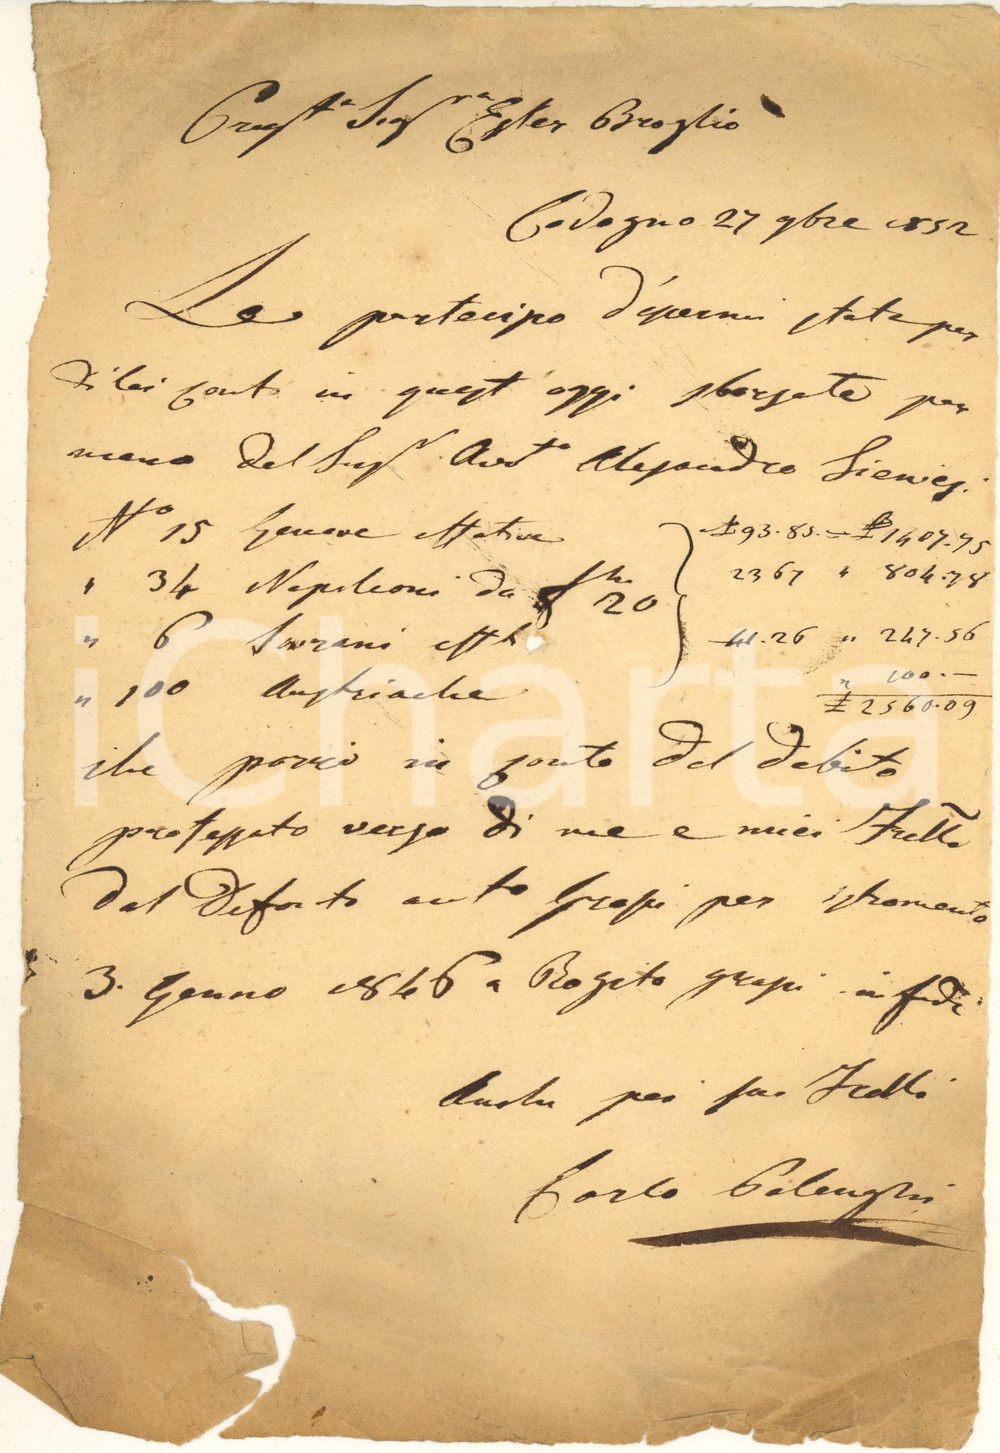 Pregt.a Sigra Ester Broglio
Codogno 27 9bre 1852
Le partecipo d'essermi stata per
di lei conto in quest'oggi sborsate per
mano del Sigr Avto Alessandro
No 15 Genove effettive £93.85.– £1407.75
" 34 Napoleoni da fchi 20 23 67 " 804.78
" 6 Sovrani effti 41.26 " 247.56
" 100 Austriache " 100.–
£ 2560.09
che porrò in conto del debito
professato verso di me e miei Frelli
dal Defonto Grossi per istromento
3. Genno 1846 a Rogito Grossi in fede
Anche pei suoi Frelli
Carlo Polenghi
iCharta